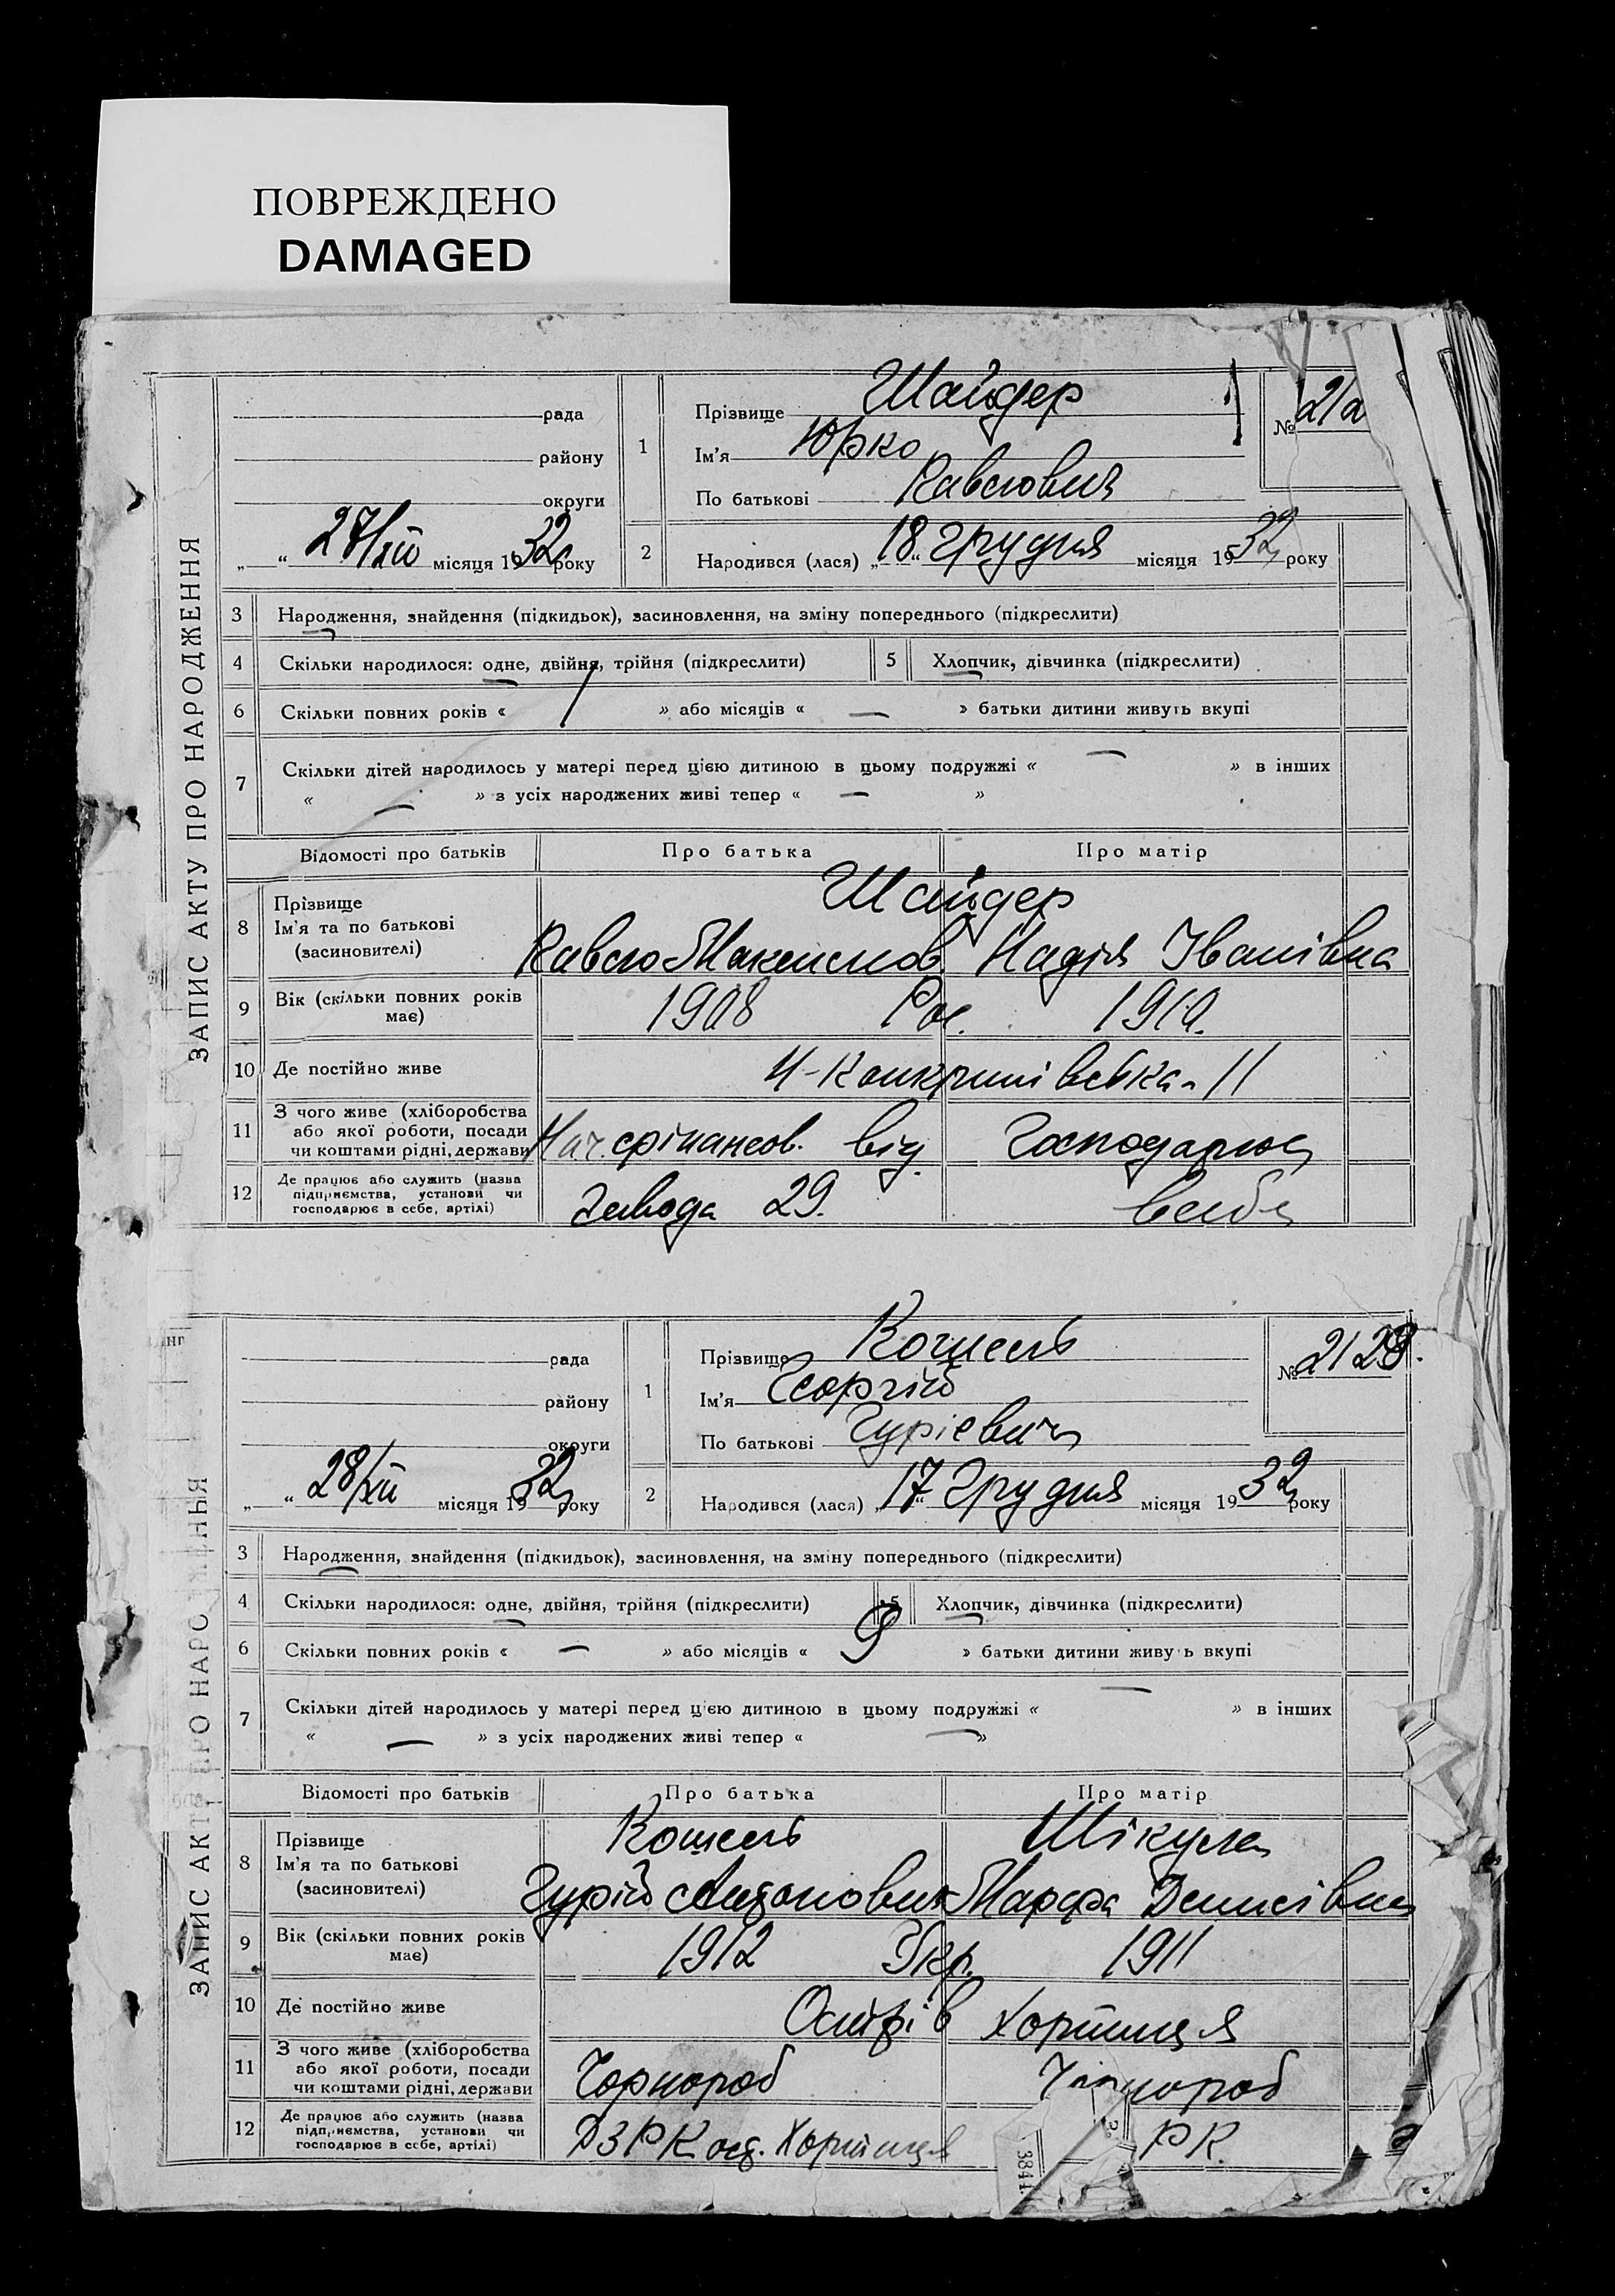 ПОВРЕЖДЕНО
DAMAGED
ЗАПИС АКТУ ПРО НАРОДЖЕННЯ
рада
району
округи
„ “ 27/XII місяця 1932 року
1 Прізвище Шайдер
Ім'я Юрко
По батькові Павлович
№ 212
2 Народився (лася) „18“ Грудня місяця 1932 року
3 Народження, знайдення (підкидьок), засиновлення, на зміну попереднього (підкреслити)
4 Скільки народилося: одне, двійня, трійня (підкреслити) 5 Хлопчик, дівчинка (підкреслити)
6 Скільки повних років « 1 » або місяців « — » батьки дитини живуть вкупі
7 Скільки дітей народилось у матері перед цією дитиною в цьому подружжі « — » в інших
« — » з усіх народжених живі тепер « — »
Відомості про батьків Про батька Про матір
8 Прізвище Шайдер
Ім'я та по батькові Павло Максимов. Надія Іванівна
(засиновителі)
9 Вік (скільки повних років має) 1908 Рос. 1910.
10 Де постійно живе 11
11 З чого живе (хліборобства
або якої роботи, посади
чи коштами рідні, держави Нач. фінансов. від. Господарює
12 Де працює або служить (назва
підприємства, установи чи
господарює в себе, артілі) Завода 29.
ЗАПИС АКТУ ПРО НАРОДЖЕННЯ
рада
району
округи
„ “ 28/XII місяця 1932 року
1 Прізвище Кошель
Ім'я Георгій
По батькові Гурієвич
№ 2128.
2 Народився (лася) „17“ Грудня місяця 1932 року
3 Народження, знайдення (підкидьок), засиновлення, на зміну попереднього (підкреслити)
4 Скільки народилося: одне, двійня, трійня (підкреслити) 5 Хлопчик, дівчинка (підкреслити)
6 Скільки повних років « — » або місяців « 9 » батьки дитини живуть вкупі
7 Скільки дітей народилось у матері перед цією дитиною в цьому подружжі « — » в інших
« — » з усіх народжених живі тепер « — »
Відомості про батьків Про батька Про матір
8 Прізвище Кошель Шікула
Ім'я та по батькові Гурій Антонович Марфа Денисівна
(засиновителі)
9 Вік (скільки повних років має) 1912 Укр. 1911
10 Де постійно живе Острів Хортиця
11 З чого живе (хліборобства
або якої роботи, посади
чи коштами рідні, держави Чорнороб Чорнороб
12 Де працює або служить (назва
підприємства, установи чи
господарює в себе, артілі) ДЗРК ост. Хортиця РК.
3841